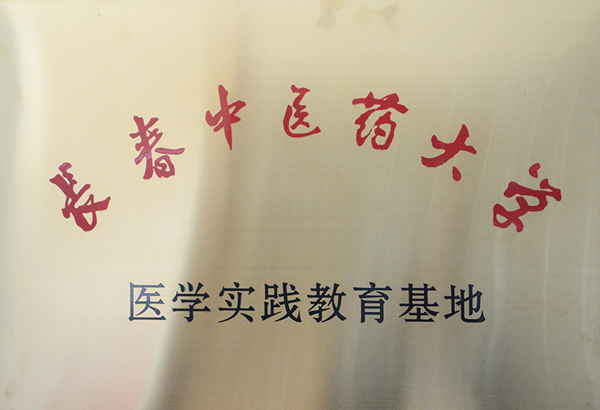 長春中医药大学
医学实践教育基地